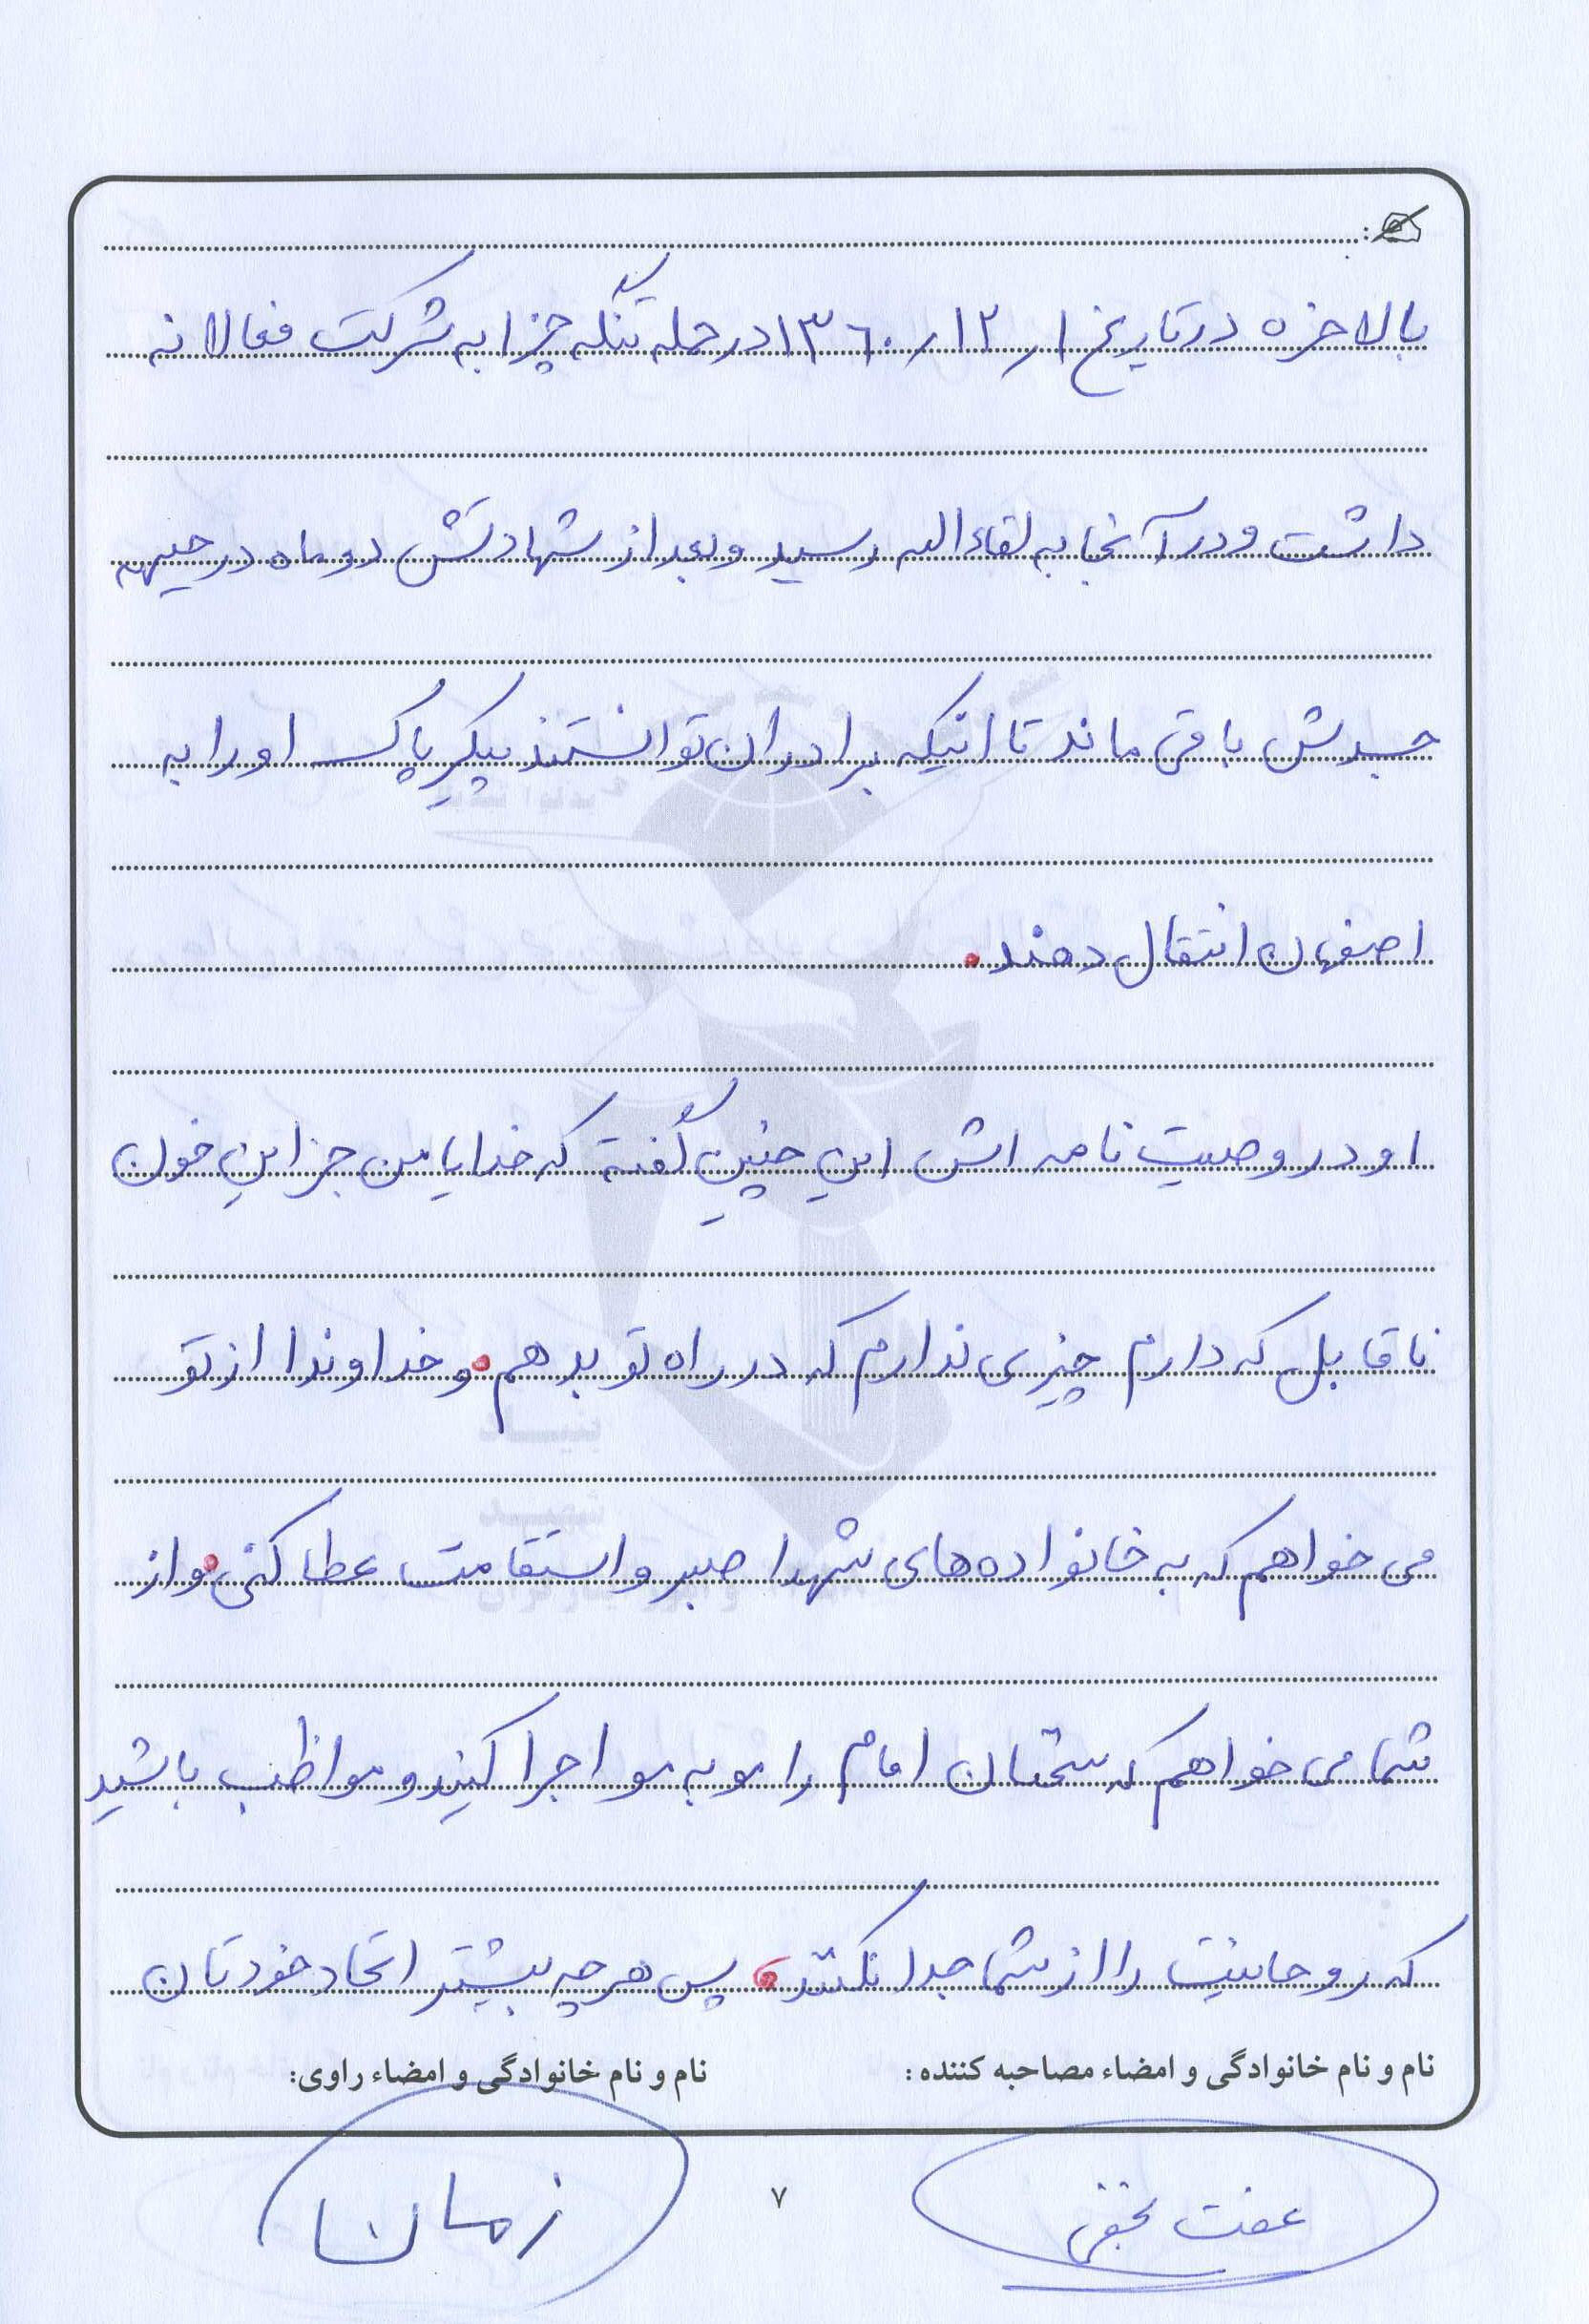 بالاخره در تاریخ ۱ر۱۲ر۱۳۶۰ در حمله تنگه چزابه شرکت فعالانه
داشت و در آنجا به لقاءالله رسید و بعد از شهادتش دو ماه در جبهه
جسدش باقی ماند تا اینکه برادران توانستند پیکر پاک او را به
اصفهان انتقال دهند.
او در وصیت نامه اش این چنین گفته که خدایا من جز این خون
ناقابل که دارم چیزی ندارم که در راه تو بدهم. و خداوندا از تو
می خواهم که به خانواده های شهدا صبر و استقامت عطا کنی. و از
شما می خواهم که سخنان امام را مو به مو اجرا کنید و مواظب باشید
که روحانیت را از شما جدا نکنند، پس هر چه بیشتر اتحاد خودتان
نام و نام خانوادگی و امضاء مصاحبه کننده: نام و نام خانوادگی و امضاء راوی:
عفت نجفی زمان
۷